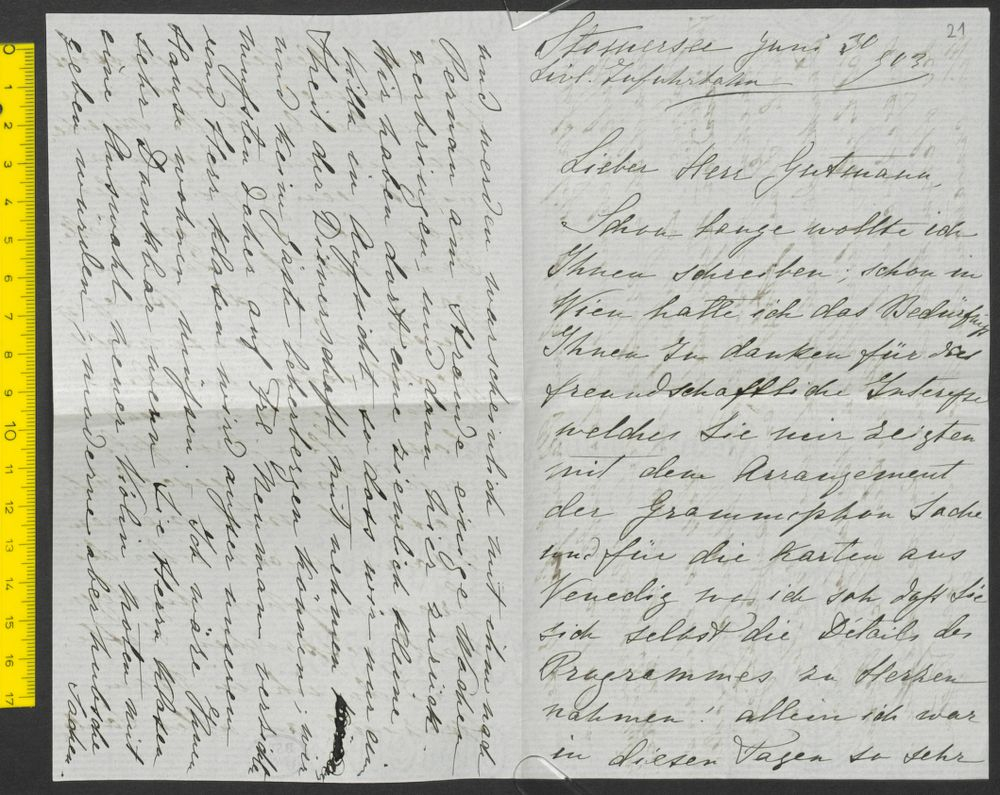 21
Stomersee Juni 30
903
Livl. Zufuhrbahn
Lieber Herr Gutmann,
Schon lange wollte ich
Ihnen schreiben; schon in
Wien hatte ich das Bedürfniß
Ihnen zu danken für das
freundschaftliche Interesse
welches Sie mir zeigten
mit dem Arrangement
der Grammophon Sache
und für die Karten aus
Venedig wo ich sah daß Sie
sich selbst die Détails des
Programmes zu Herzen
nahmen. allein ich war
in diesen Tagen so sehr
und werden warscheinlich mit ihm nach
Pernau am Strande einige Wochen
verbringen und dann hier zurück.
Wir haben dort eine ziemlich kleine
Villa in Aufsicht so dass wir nur ein
Theil der Dienerschaft mitnehmen
und kein Gast beherbergen können; wir
mußten daher auf Frl Neumann
und Herr Klasen wird außer unserem
Hause wohnen müssen. Ich wäre Ihnen
sehr Dankbar wenn Sie Herrn Klasen
eine Auswahl neuer Violin noten mit
geben würden, moderne aber hübsche
Sachen.
0 1 2 3 4 5 6 7 8 9 10 11 12 13 14 15 16 17